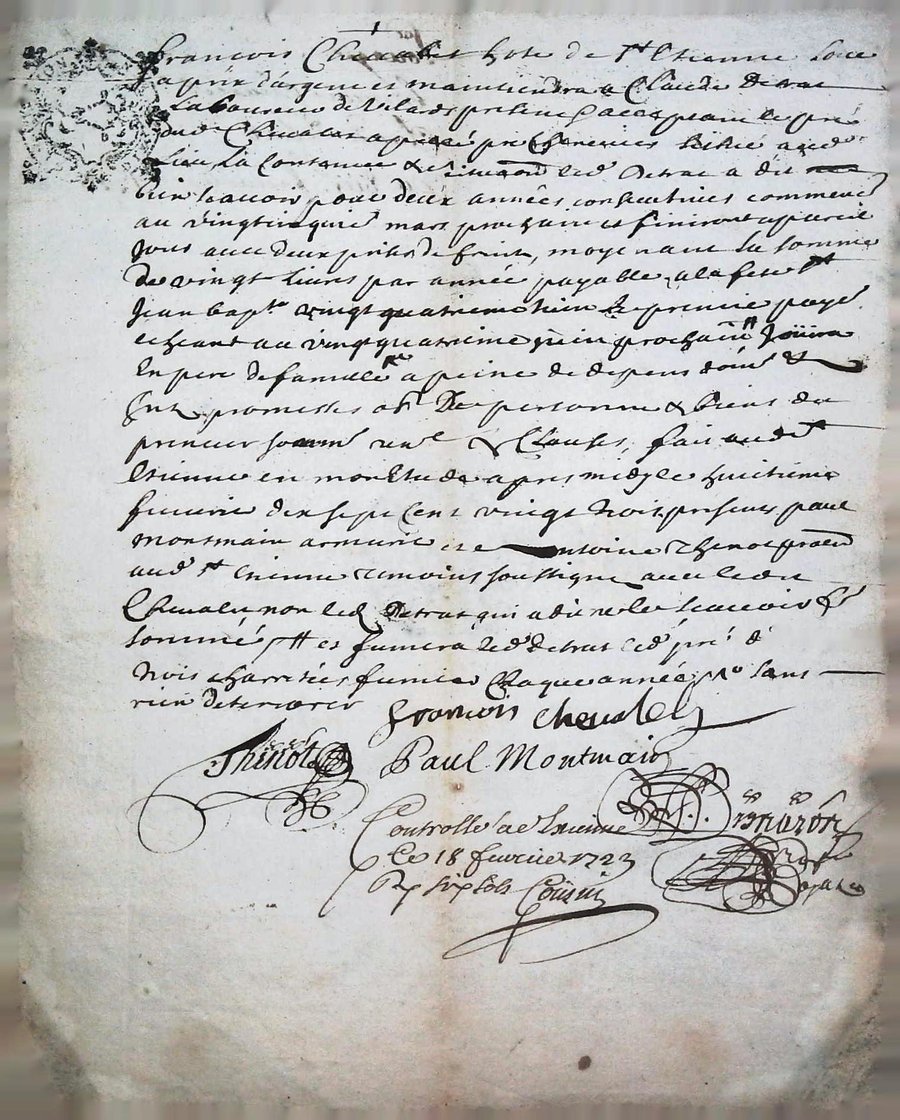 François Chevalier hote de St Etienne loue
a prix d'argent et maintiendra a Claude Detrat
Laboureur de present acceptant le pré
dud Chevalier appellé
lieu la Contenue & led Detrat a dit
bien scavoir pour deux années consecutives commencé
au vingtcinquie mars prochain et finiront a pareil
jour avec deux prises de fruits, moyenant la somme
de vingt livres par année payable a la feste St
Jean bapte vingt quatrieme juin Le premier paye
echeant au vingt quatrieme juin prochain Jouira
En pere de famille a peine de depens dom &
promesses ob De personne & biens du
preneur & Clauses, fait aud St
Etienne en mon Etude apres midy le huitieme
fevrier dix sept Cent vingt trois, presents paul
montmain armurié et Antoine Thenot praten
aud St Etienne temoins soussignés avec led
Chevalier non led Detrat qui a dit ne le scavoir
sommé et fumera led detrat led pré de
trois charretées fumier Chaque année sans
rien deteriorer
François Chevalier
Thenot
Paul Montmain
Controllé a St Etienne
Le 18 fevrier 1723
R six sols Cousin